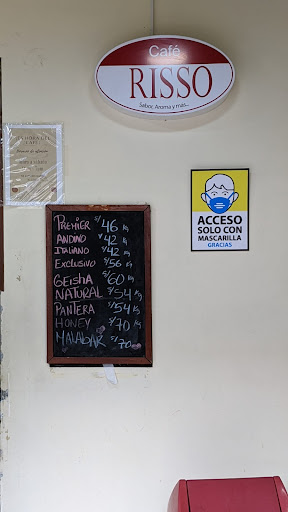 Café
RISSO
Sabor, Aroma y mas...
PREMIER S/46 Kg
ANDINO S/42 Kg
ITALIANO S/42 Kg
EXCLUSIVO S/56 Kg
GEISHA S/60 Kg
NATURAL S/54 Kg
PANTERA S/54 Kg
HONEY S/70 Kg
MALABAR S/70
ACCESO
SOLO CON
MASCARILLA
GRACIAS